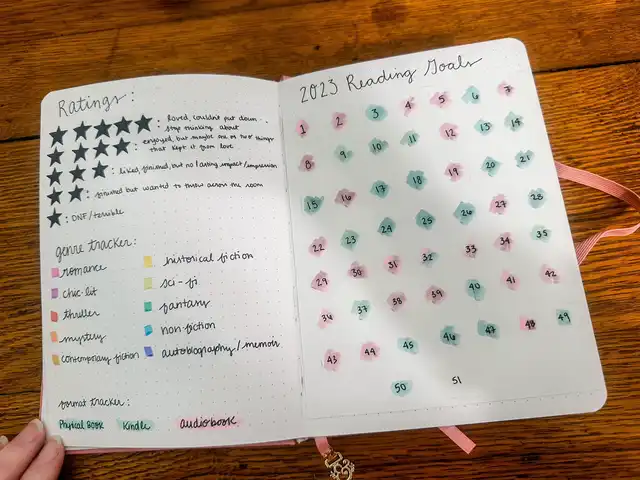 Ratings:
★★★★★: loved, couldn't put down,
stop thinking about
★★★★: enjoyed, but maybe one or two things
that kept it from love
★★★: liked, finished, but no lasting impact/impression
★★: finished but wanted to throw across the room
★: DNF/terrible
genre tracker:
romance
chic-lit
thriller
mystery
contemporary fiction
historical fiction
sci-fi
fantasy
non fiction
autobiography/memoir
format tracker:
Physical Book Kindle audiobook
2023 Reading Goals
1 2 3 4 5 6 7
8 9 10 11 12 13 14
15 16 17 18 19 20 21
22 23 24 25 26 27 28
29 30 31 32 33 34 35
36 37 38 39 40 41 42
43 44 45 46 47 48 49
50 51